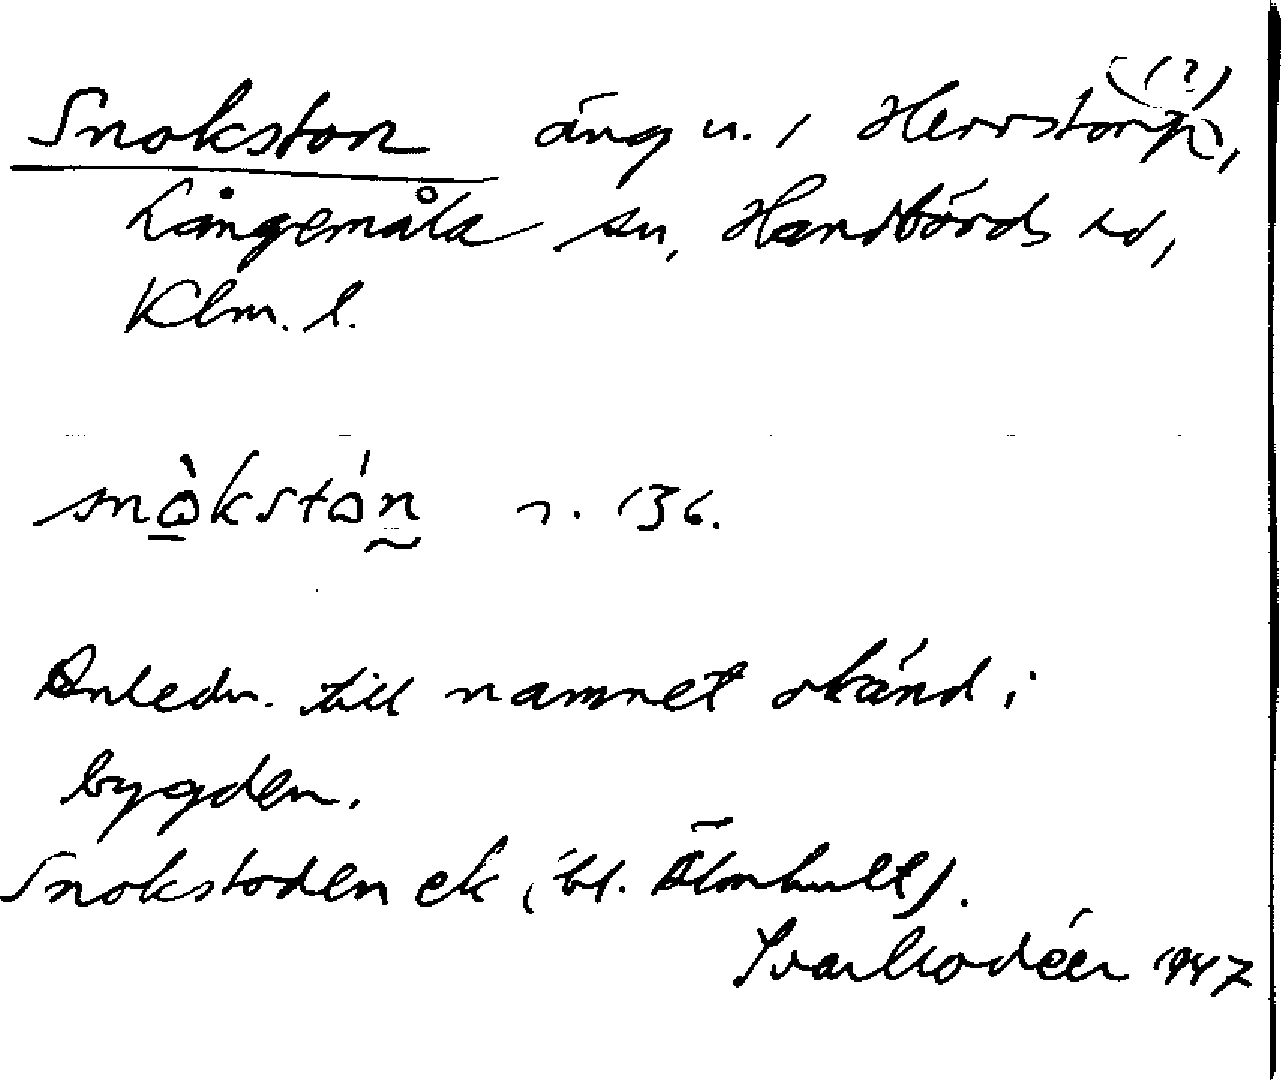 Snokston äng u. i Herrstorp (?),
Långemåla sn, Handbörds hd,
Klm. l.
snòkstón r. 136.
Anledn. till namnet okänd i
bygden.
Snokstoden ek (bl. Älmhult).
Ivar Modéer 1947